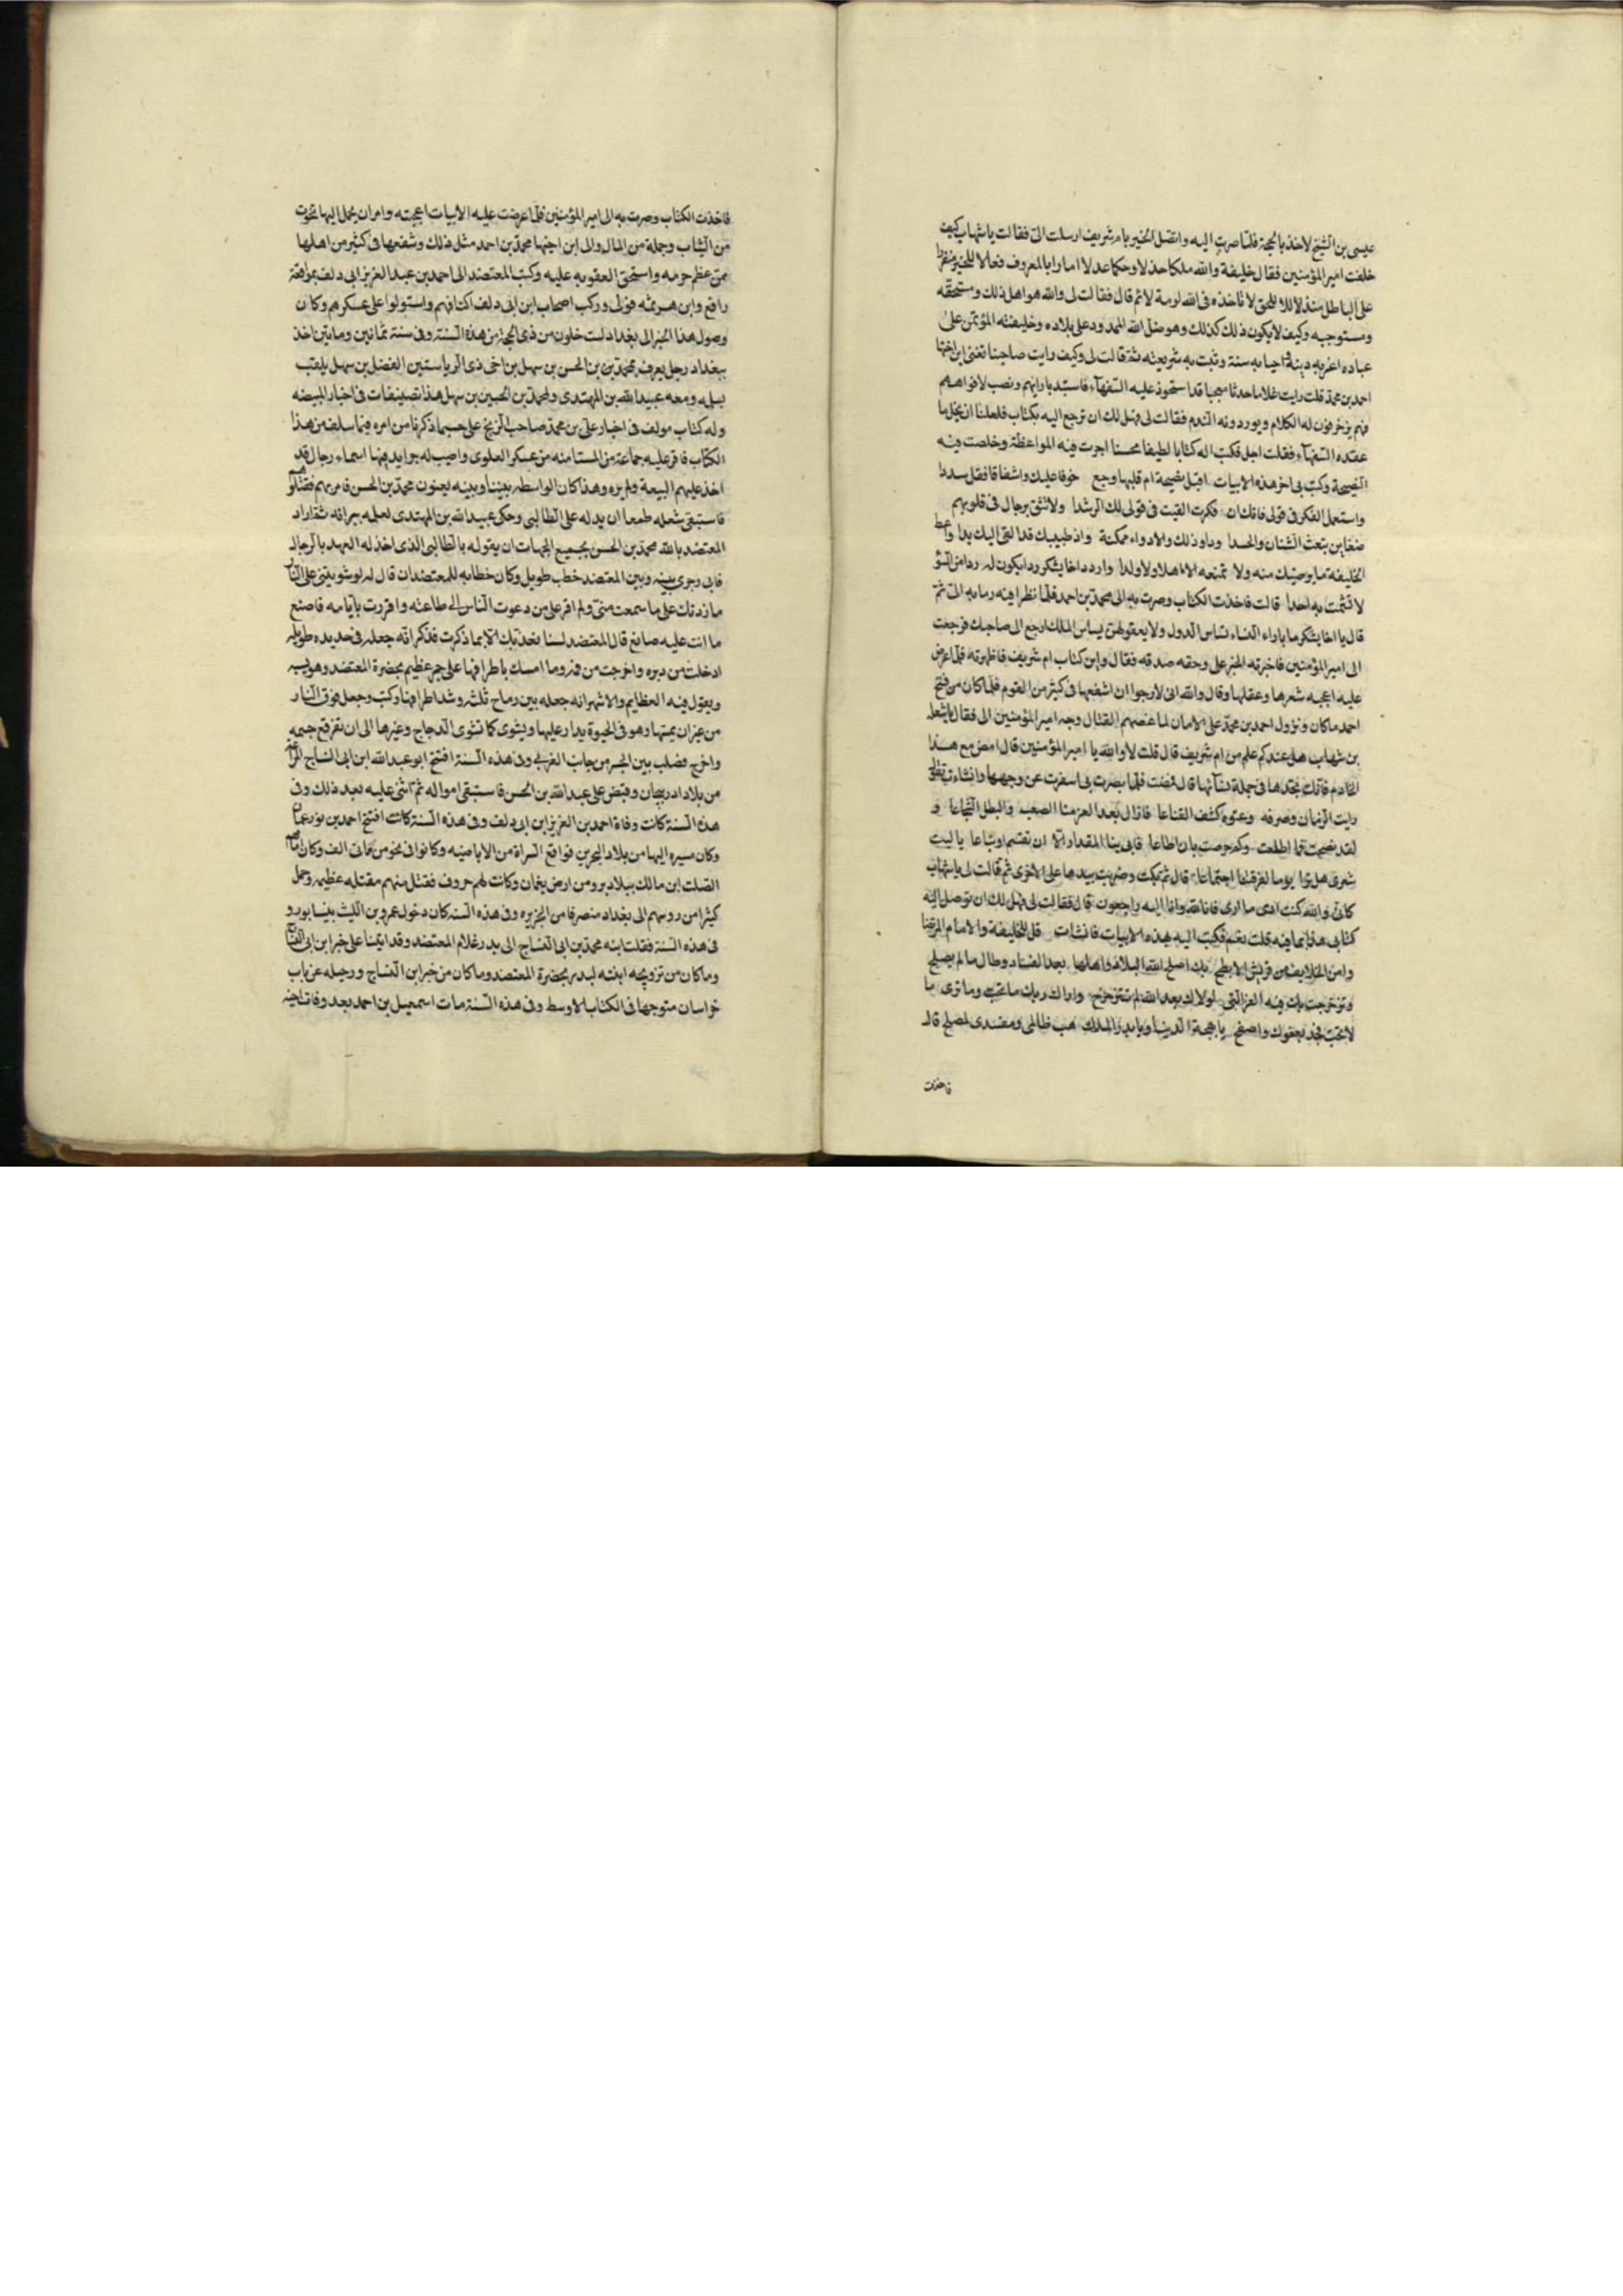 عيسى بن الشيخ لاخذ بالحجة فلما صرت اليه واتصل الخبر بام شريف ارسلت الى فقالت يا شهاب كيف
خلفت امير المؤمنين فقال خليفة والله ملكا جذلا وحكما عدلا امارا بالمعروف فعالا للخير
على الباطل متذللا للحق لا تاخذه في الله لومة لائم قال فقالت لى والله هو اهل ذلك ومستحقه
ومستوجبه وكيف لا يكون ذلك كذلك وهو ظل الله الممدود على بلاده وخليفته المؤتمن على
عباده اعز به دينه واحيا به سنة وثبت به شريعته ثم قالت لى وكيف رايت صاحبنا تعنى ابن اخيها
احمد بن محمد قلت رايت غلاما حدثا معجبا قد استحوذ عليه السفهآء فاستبد بارائهم ونصب لافواههم
فهم يزخرفون له الكلام ويوردونه الندم فقالت لى فهل لك ان ترجع اليه بكتاب فلعلنا ان نحل ما
عقده السفهآء فقلت اجل فكتب اليه كتابا لطيفا محسنا اجرت فيه المواعظة وخلصت فيه
النصيحة وكتب فى اخر هذه الابيات اقبل نصيحة ام قلبها وجع خوفا عليك واشفاقا فقل سددا
واستعمل الفكر فى قولى فانك ان فكرت القيت فى قولى لك الرشدا ولا تثق برجال فى قلوبهم
ضغاين تبعث الشنان والحسدا وداو ذلك والادواء ممكنة واذ طبيبك قد القى اليك يدا واعط
الخليفة ما يرضيك منه ولا تمنعه لا اهلا ولا ولدا واردد اخا يشكر ردا يكون له ردا من السؤ
لا تشمت به احدا قالت فاخذت الكتاب وصرت به الى محمد بن احمد فلما نظر فيه رمى به الى ثم
قال يا اخا يشكر ما باراء النساء تساس الدول ولا بعقولهن يساس الملك ارجع الى صاحبك فرجعت
الى امير المؤمنين فاخبرته الخبر على وحقه صدقه فقال واين كتاب ام شريف فاظهرته فلما عرض
عليه اعجبه شعرها وعقلها وقال والله انى لارجوا ان اشفعها فى كثير من القوم فلما كان من فتح
احمد ما كان ونزول احمد بن محمد على الامان لما عضهم القتال وجه امير المؤمنين الى فقال يا شعلة
بن شهاب هل عندكم علم من ام شريف قال قلت لا والله يا امير المؤمنين قال امض مع هذا
الخادم فانك تجدها فى جملة نسآئها قال فمضت فلما بصرت بى اسفرت عن وجهها وانشاءت تقول
ريب الزمان وصرفه وعتوه كشف القناعا فاذال بعد العز منا الصعب والبطل الشجاعا و
لقد نصحت فما اطلعت وكم حرصت بان اطاعا فابى بنا المقدار الا ان نقسم او نباعا يا ليت
شعرى هل نرى يوما لفرقتنا اجتماعا قال ثم بكت وضربت بيدها على الاخرى ثم قالت لى يا شهاب
كانى والله كنت ارى ما ارى فانا لله وانا اليه راجعون قال فقالت لى فهل لك ان توصل اليه
كتابى هذا بما فيه قلت نعم فكتبت اليه بهذه الابيات فانشات قل للخليفة والامام المرتضا
وابن الخلايف من قريش الابطح بك اصلح الله البلاد واهلها بعد الفساد وطال ما لم يصلح
وتزحزحت بك فيه العز التى لولاك بعد الله لم تتزحزح واراك ربك ما تحب وما ترى ما
لا تحب فجد بعفوك واصفح يا بهجة الدنيا ويا بدر الملك هب ظالمى ومفسدى لمصلح قال
فاخذت
فاخذت الكتاب وصرت به الى امير المؤمنين فلما عرضت عليه الابيات اعجبته وامر ان يحمل اليها تخوت
من الثياب وجملة من المال والى ابن اخيها محمد بن احمد مثل ذلك وشفعها فى كثير من اهلها
ممن عظم جرمه واستحق العقوبه عليه وكتب المعتضد الى احمد بن عبد العزيز ابى دلف بمواقعة
رافع وابن هرثمه فولى وركب اصحاب ابن ابى دلف اكتافهم واستولوا على عسكرهم وكان
وصول هذا الخبر الى بغداد لست خلون من ذى الحجة من هذه السنة وفى سنة ثمانين ومايتين اخذ
ببغداد رجل يعرف بمحمد بن الحسن بن سهل بن اخى ذى الرياستين الفضل بن سهل يلقب
بيله ومعه عبيد الله بن المهتدى ولمحمد بن الحسين بن سهل هذا تصنيفات فى اخبار المبيضه
وله كتاب مولف فى اخبار على بن محمد صاحب الزنج على حسب ما ذكرنا من امره فيما سلف من هذا
الكتاب فاقر عليه جماعة من المستامنه من عسكر العلوى واصيب له جرايد فيها اسماء رجال قد
اخذ عليهم البيعة ولم يره وهذا كان الواسطه بيننا وبينه يعنون محمد بن الحسن فامر بهم فقتلوا
فاستبقى شعله طمعا ان يدله على الطالبى وخلى عبيد الله بن المهتدى لعلمه ببراته ثم اراد
المعتضد بالله محمد بن الحسن بجميع الجهات ان يقول له بالطالبى الذى اخذ له العهد بالرجال
فابى وجرى بينه وبين المعتضد خطب طويل وكان خطابه للمعتضد ان قال له لو شويتنى على النار
ما زدتك على ما سمعت منى ولم اقر على من دعوت الناس الى طاعته واقررت بآيامه فاصنع
ما انت عليه صانع قال المعتضد لسنا نعذبك الا بما ذكرت فذكر انه جعله فى حديده طويله
ادخلت من دبره واخرجت من فمه وما امسك باطرافها على جمر عظيم بحضرة المعتضد وهو يسبه
ويقول فيه العظايم والاشهر انه جعله بين رماح ثلثه وشد اطرافها وكتف وجعل فوق النار
من غير ان يمسها وهو فى الحيوة يدار عليها ويشوى كما تشوى الدجاج وغيرها الى ان تفرقع جسمه
واخرج فصلب بين الجسر من جانب الغربى وفى هذه السنة افتتح ابو عبد الله ابن ابى الساج المراغه
من بلاد ادربيجان وقبض على عبد الله بن الحسن فاستبقى امواله ثم اتى عليه بعد ذلك وفى
هذه السنة كانت وفاة احمد بن العزيز ابن ابى دلف وفى هذه السنة كانت افتتح احمد بن ثور عمان
وكان مسيره اليها من بلاد البحرين فواقع السراة من الاباضيه وكانوا فى نحو من مائتى الف وكان امامهم
الصلت ابن مالك ببلاد برو من ارض عمان وكانت لهم حروف فقتل منهم مقتله عظيمه وحمل
كثيرا من روسهم الى بغداد منصرفا من الجزيره وفى هذه السنه كان دخول عمرو بن الليث نيسابور و
فى هذه السنة نقلت ابنه محمد بن ابى الساج الى بدر غلام المعتضد وقد اتينا على خبر ابن ابى الساج
وما كان من تزويجه ابنته لبدر بحضرة المعتضد وما كان من خبر ابن الساج ورحيله عن باب
خراسان متوجها فى الكتاب الاوسط وفى هذه السنة مات اسمعيل بن احمد بعد وفات اخيه